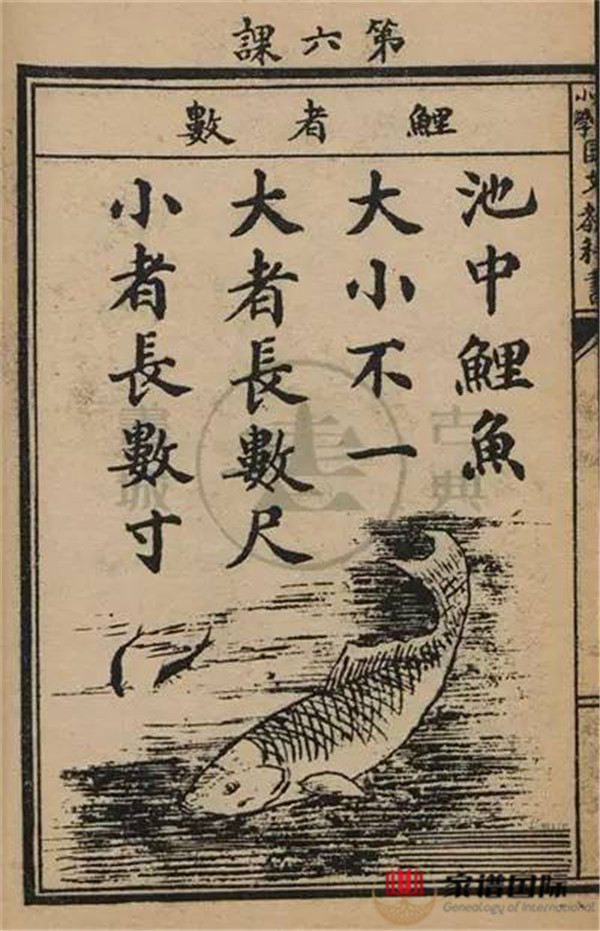 第六課
鯉者數
池中鯉魚
大小不一
大者長數尺
小者長數寸
小學國文教科書
古典書城
家谱国际
Genealogy of International